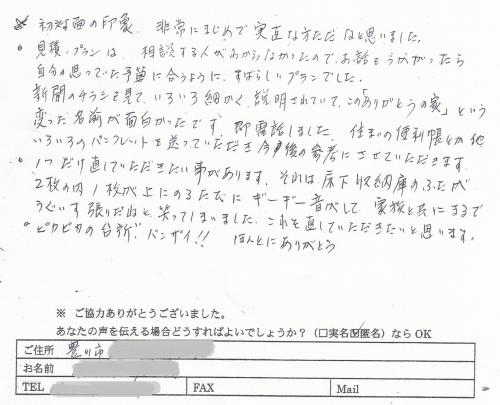 初対面の印象、非常にまじめで実直な方だなと思いました。
。見積・プランは、相談する人がわからなかったのでお話をうかがったら
自分の思っていた予算に合うように、すばらしいプランでした。
新聞のチラシを見て、いろいろ細かく説明されていて、この「ありがとうの家」という
変った名前が面白かったです。即電話しました。住まいの便利帳とか他
いろいろのパンフレットを送っていただき今後の参考にさせていただきます。
。1つだけ直していただきたい事があります。それは床下収納庫のふたが
2枚の内1枚が上にのるたびにギーギー音がして家族と共にまるで
うぐいす張りだねと、笑ってしまいました。これを直していただきたいと思います。
。ピカピカの台所、バンザイ!! ほんとにありがとう
※ ご協力ありがとうございました。
あなたの声を伝える場合どうすればよいでしょうか?(□実名☑匿名)ならOK
ご住所 豊川市
お名前
TEL FAX Mail